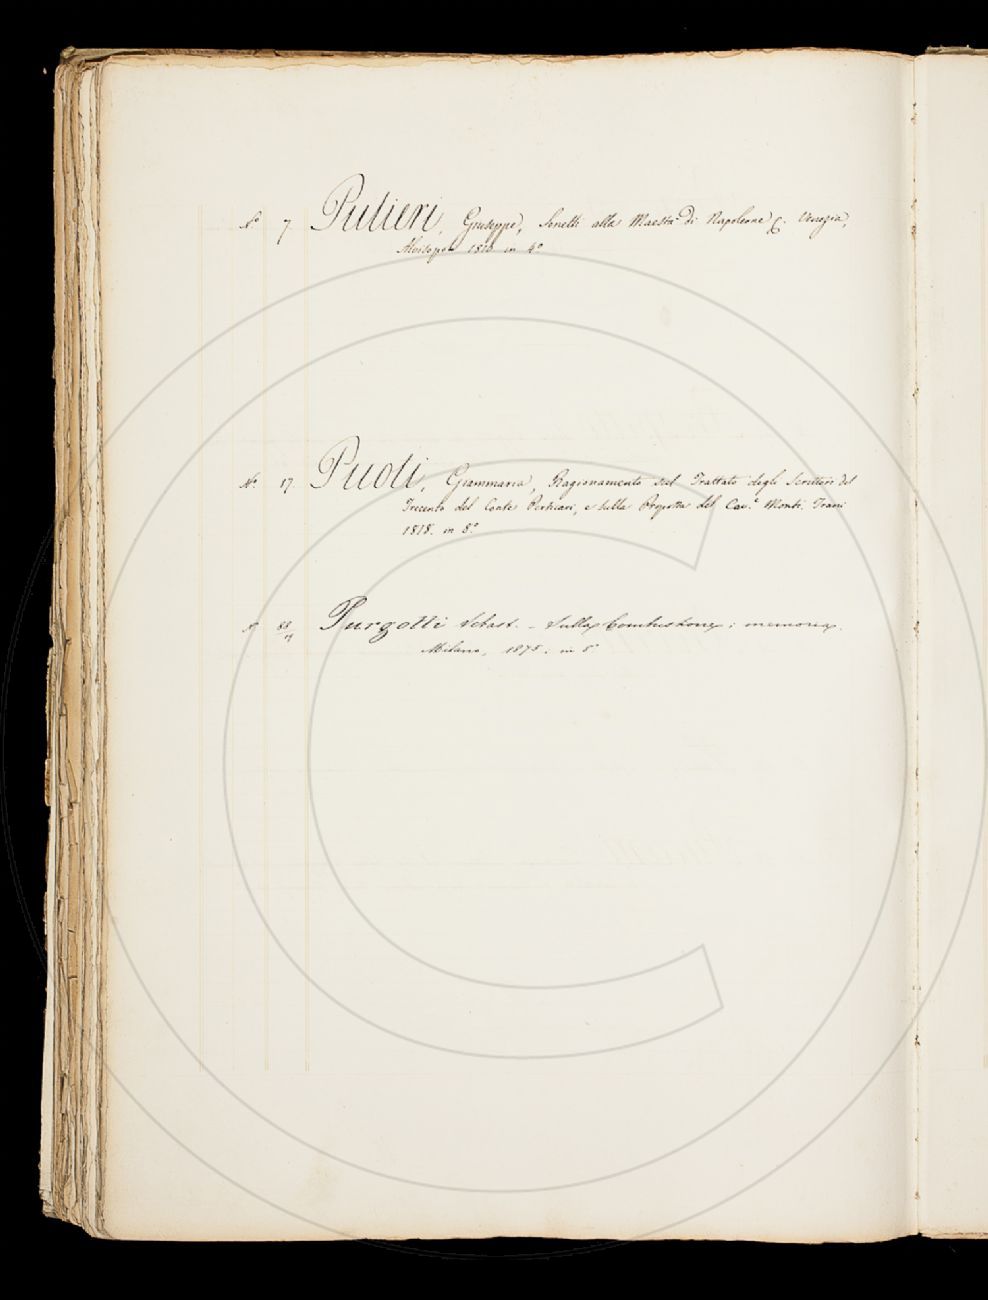 N.º 7. Pulieri, Giuseppe, Sonetti alla Maestà di Napoleone &. Venezia,
Alvisopoli 1810 in 4º
Nº. 17. Puoti, Giammaria, Ragionamento sul Trattato degli Scrittori del
Trecento del Conte Perticari, e sulla Proposta del Cav.e Monti. Trani
1818. in 8º.
N. 88 Purgotti Sebast. – Sulla Combustione; memoria.
Milano, 1875. in 8º
C